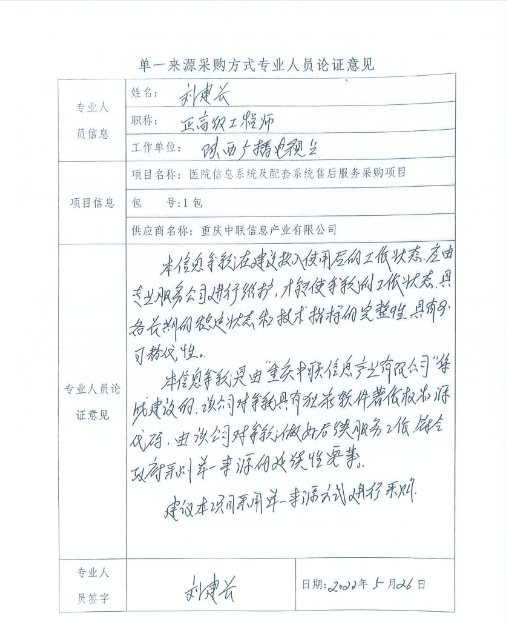 单一来源采购方式专业人员论证意见
专业人员信息
姓名：刘建长
职称：正高级工程师
工作单位：陕西广播电视台
项目信息
项目名称：医院信息系统及配套系统售后服务采购项目
包 号：1包
供应商名称：重庆中联信息产业有限公司
专业人员论证意见
本信息系统在建设投入使用后的工作状态，应由
专业服务公司进行维护，才能使系统的工作状态，具
备长期的稳定状态和技术指标的完整性，具有不
可替代性。
本信息系统是由“重庆中联信息产业有限公司”集
成建设的，该公司对系统具有独立软件著作权和源
代码，由该公司对系统做好后续服务工作，符合
政府采购单一来源的延续性要求。
建议本项目采用单一来源方式进行采购.
专业人员签字
刘建长
日期：2022年5月26日